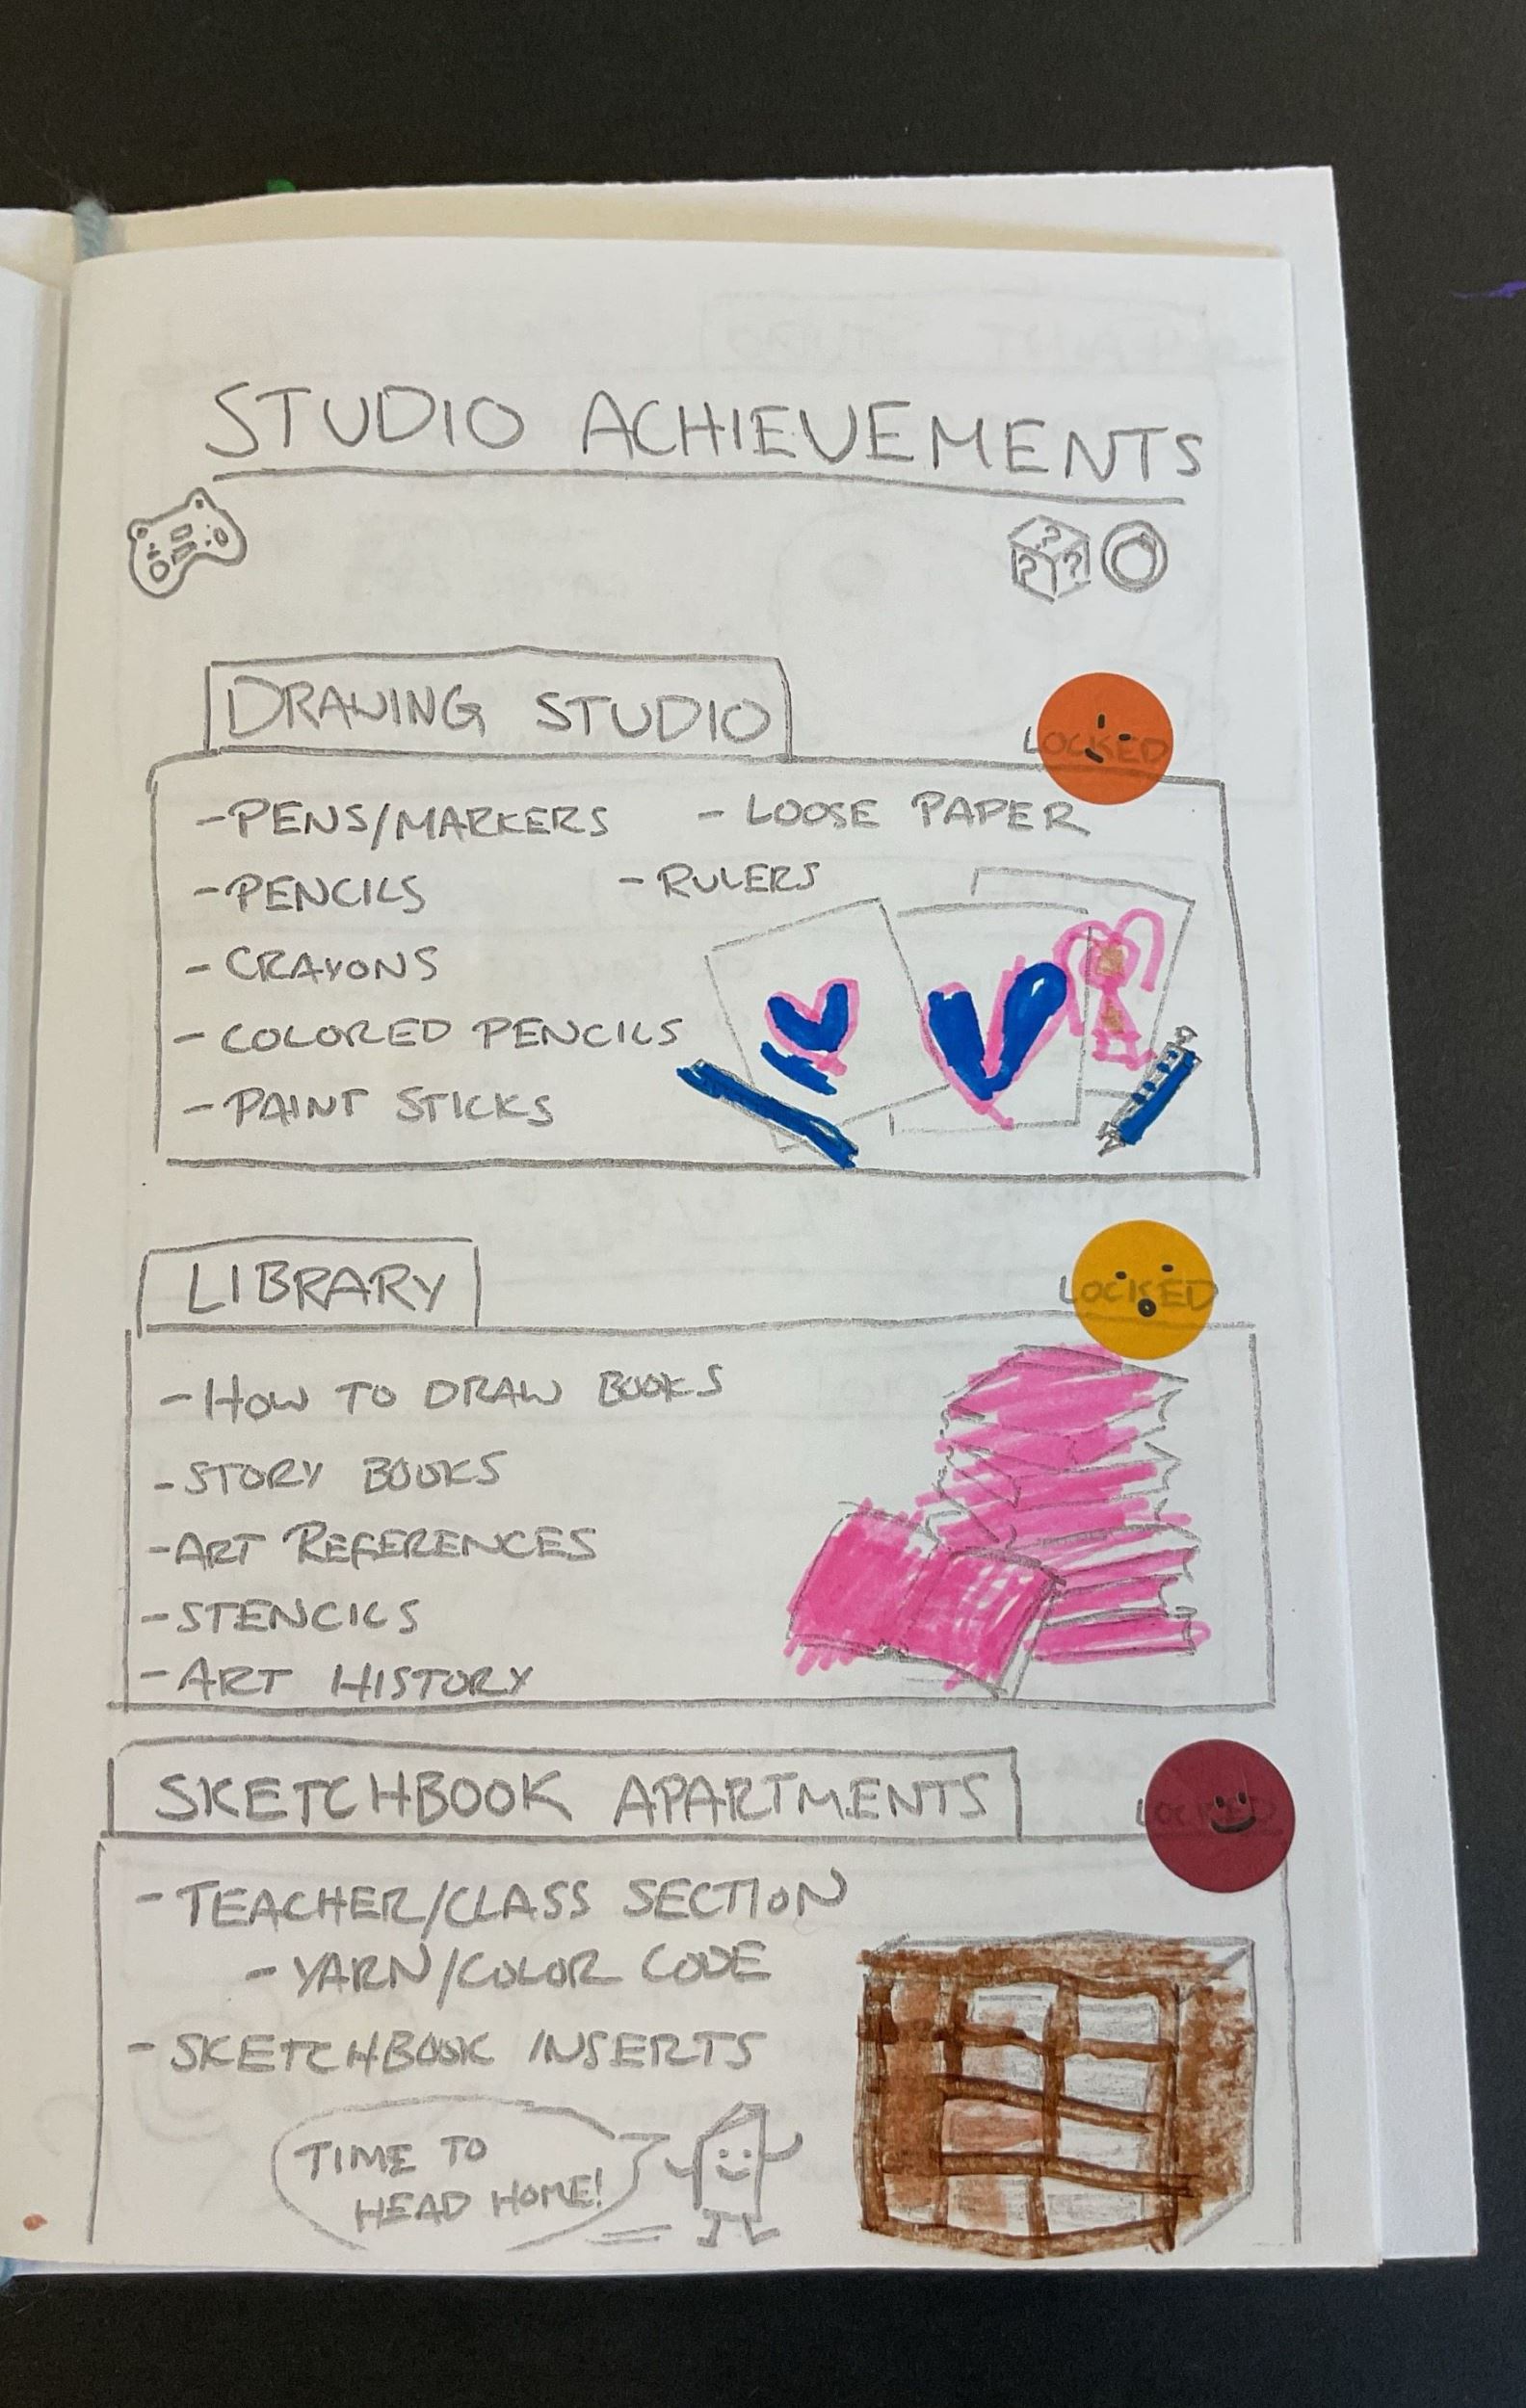 STUDIO ACHIEVEMENTS
? ? ?
DRAWING STUDIO
LOCKED
-PENS/MARKERS - LOOSE PAPER
-PENCILS -RULERS
- CRAYONS
- COLORED PENCILS
- PAINT STICKS
LIBRARY
LOCKED
-HOW TO DRAW BOOKS
-STORY BOOKS
-ART REFERENCES
-STENCILS
-ART HISTORY
SKETCHBOOK APARTMENTS
LOCKED
-TEACHER/CLASS SECTION
-YARN/COLOR CODE
-SKETCHBOOK INSERTS
TIME TO
HEAD HOME!